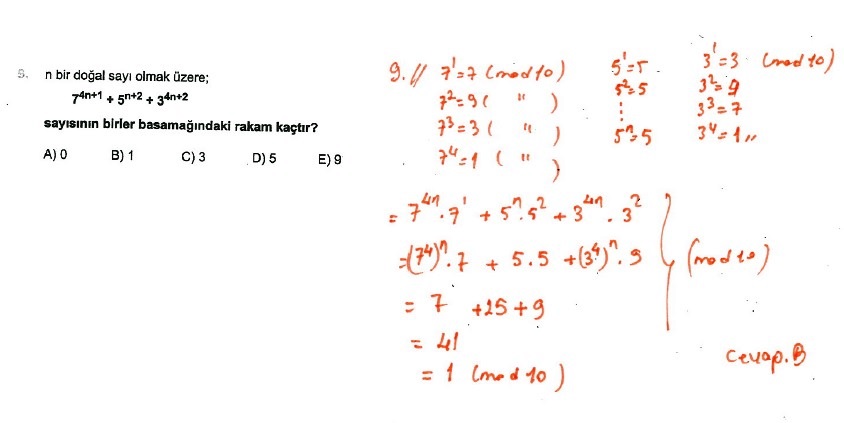 9. n bir doğal sayı olmak üzere;
7^{4n+1} + 5^{n+2} + 3^{4n+2}
sayısının birler basamağındaki rakam kaçtır?
A) 0 B) 1 C) 3 D) 5 E) 9
9.// 7^1=7 (mod 10) 5^1=5 3^1=3 (mod 10)
7^2=9 ( " ) 5^2=5 3^2=9
7^3=3 ( " ) ⋮ 3^3=7
7^4=1 ( " ) 5^n=5 3^4=1 //
= 7^{4n}.7^1 + 5^n.5^2 + 3^{4n}.3^2
=(7^4)^n.7 + 5.5 +(3^4)^n.9 (mod 10)
= 7 +25+9
= 41
= 1 (mod 10)
Cevap.B